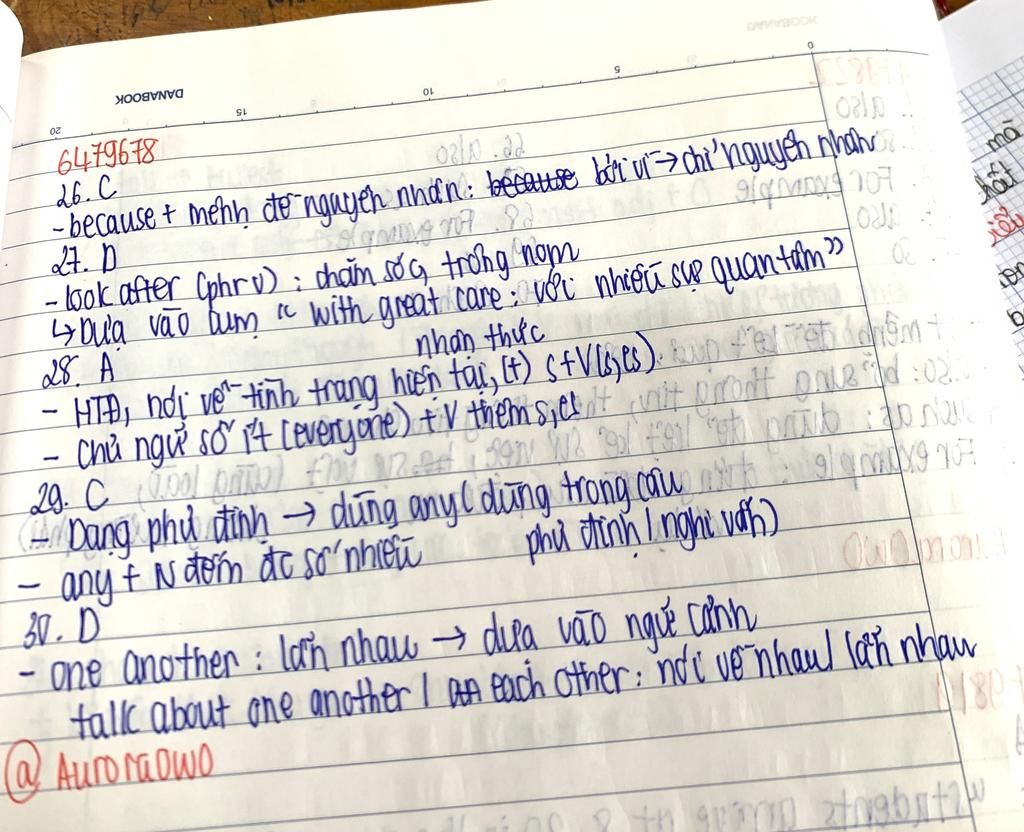 DANABOOK
0 5 10 15 20
6479678
26. C
- because + mệnh đề nguyên nhân: bởi vì → chỉ nguyên nhân
27. D
- look after (phr v) : chăm sóc, trông nom
↳ Dựa vào cụm " with great care : với nhiều sự quan tâm "
28. A
nhận thức
- HTĐ, nói về tình trạng hiện tại, (+) S+V(s,es).
- Chủ ngữ số ít (everyone) + V thêm s,es
29. C
- Dạng phủ định → dùng any ( dùng trong câu
phủ định / nghi vấn)
- any + N đếm đc số nhiều
30. D
- one another : lẫn nhau → dựa vào ngữ cảnh
talk about one another / each other : nói về nhau/ lẫn nhau
@ AuroraOwO